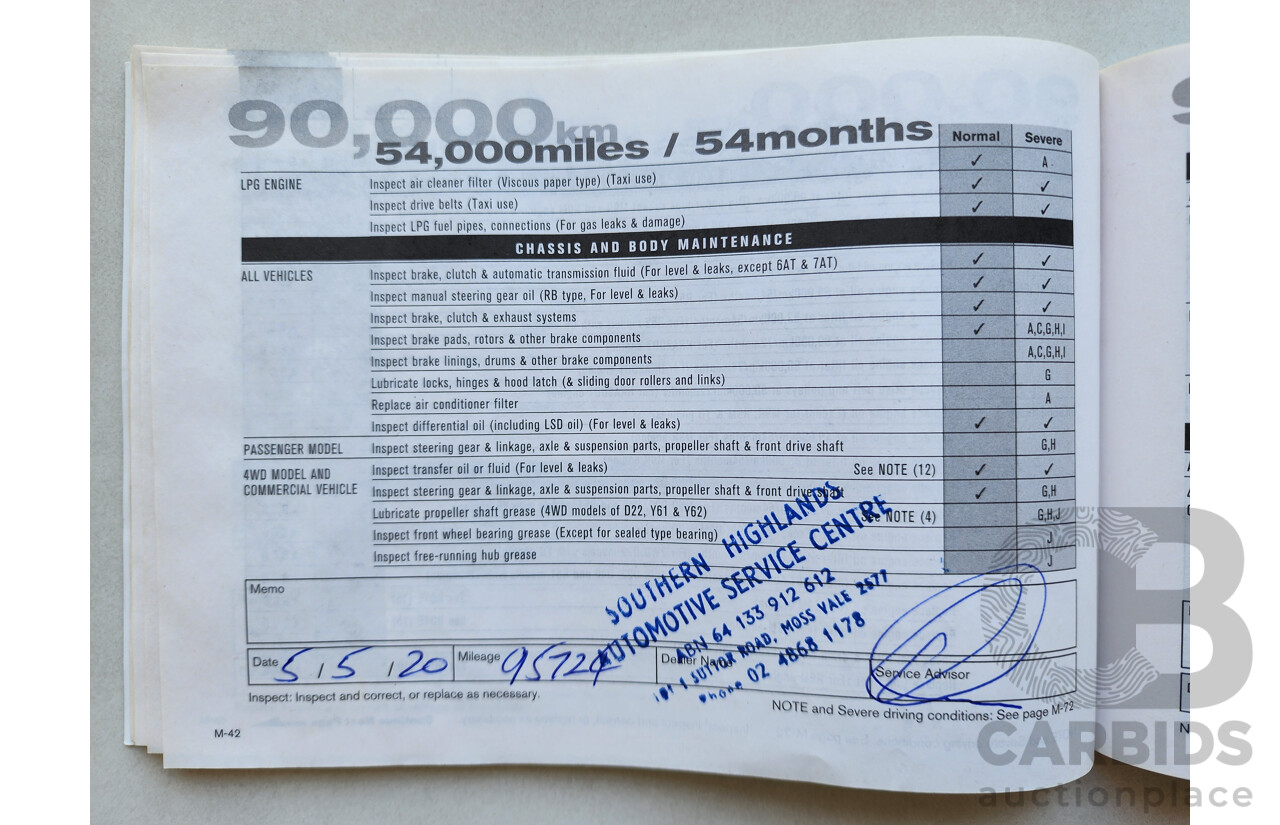 90,000km
54,000miles / 54months
Normal Severe
✓ A
LPG ENGINE Inspect air cleaner filter (Viscous paper type) (Taxi use) ✓ ✓
Inspect drive belts (Taxi use) ✓ ✓
Inspect LPG fuel pipes, connections (For gas leaks & damage)
CHASSIS AND BODY MAINTENANCE
ALL VEHICLES Inspect brake, clutch & automatic transmission fluid (For level & leaks, except 6AT & 7AT) ✓ ✓
Inspect manual steering gear oil (RB type, For level & leaks) ✓ ✓
Inspect brake, clutch & exhaust systems ✓ ✓
Inspect brake pads, rotors & other brake components ✓ A,C,G,H,I
Inspect brake linings, drums & other brake components A,C,G,H,I
Lubricate locks, hinges & hood latch (& sliding door rollers and links) G
Replace air conditioner filter A
Inspect differential oil (including LSD oil) (For level & leaks) ✓ ✓
PASSENGER MODEL Inspect steering gear & linkage, axle & suspension parts, propeller shaft & front drive shaft G,H
4WD MODEL AND Inspect transfer oil or fluid (For level & leaks) See NOTE (12) ✓ ✓
COMMERCIAL VEHICLE Inspect steering gear & linkage, axle & suspension parts, propeller shaft & front drive shaft ✓ G,H
Lubricate propeller shaft grease (4WD models of D22, Y61 & Y62) See NOTE (4) G,H,J
Inspect front wheel bearing grease (Except for sealed type bearing) J
Inspect free-running hub grease J
SOUTHERN HIGHLANDS
AUTOMOTIVE SERVICE CENTRE
ABN 64 133 912 612
1 SUTTOR ROAD, MOSS VALE 2577
Phone 02 4868 1178
Memo
Date 5/5/20 Mileage 95724 Dealer Name Service Advisor
Inspect: Inspect and correct, or replace as necessary.
NOTE and Severe driving conditions: See page M-72
M-42
CARBIDS
auctionplace